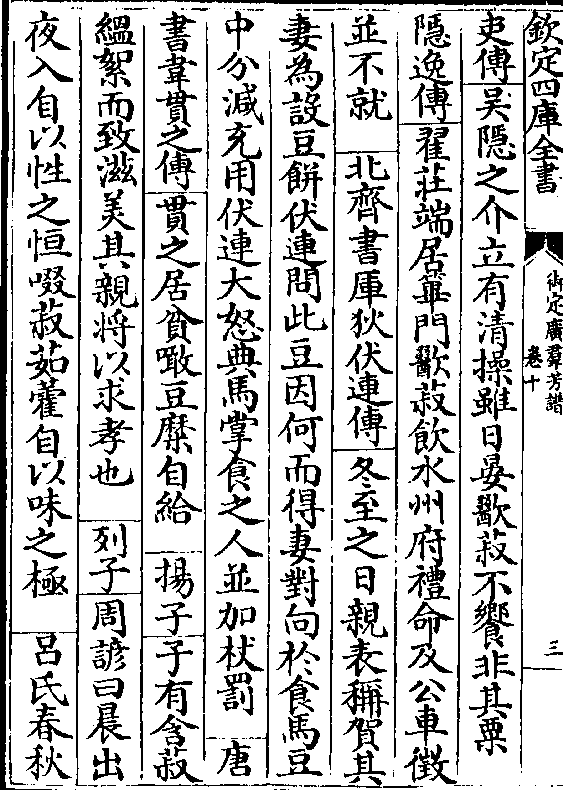 欽定四庫全書
御定廣羣芳譜
卷十
三
吏傳吴隱之介立有清操雖日晏歠菽不饗非其粟
隱逸傳翟莊端居蓽門歠菽飲水州府禮命及公車徵
並不就 北齊書厙狄伏連傳冬至之日親表稱賀其
妻為設豆餅伏連問此豆因何而得妻對向於食馬豆
中分減充用伏連大怒典馬掌食之人並加杖罰 唐
書韋貫之傳貫之居貧噉豆糜自給 揚子子有含菽
緼絮而致滋美其親将以求孝也 列子周諺曰晨出
夜入自以性之恒啜菽茹藿自以味之極 吕氏春秋